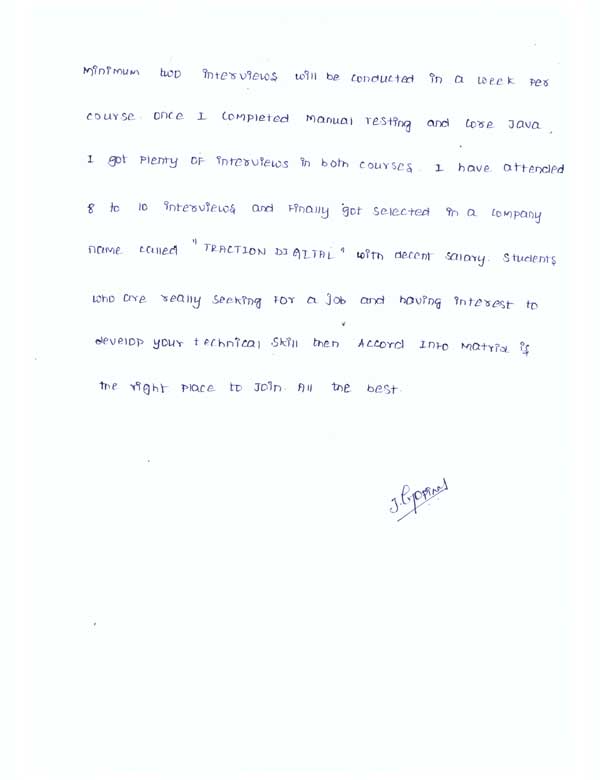 Minimum two interviews will be conducted in a week per
course. once I completed Manual Testing and Core Java,
I got plenty of interviews in both courses. I have attended
8 to 10 interviews and finally got selected in a company
name called "TRACTION DIGITAL" with decent salary. Students
who are really seeking for a job and having interest to
develop your technical skill then Accord Info Matrix if
the right place to join. All the best.